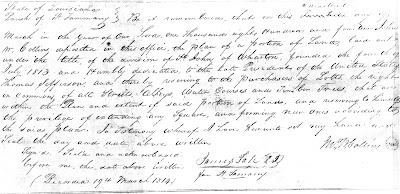 State of Louisiana
Parish of St Tammany } Be it remembered, that on this
March in the year of our Lord, one thousand eight hundred and fourteen
W. Collins deposited in this office, the plan of a portion of Land,
under the title of the division of St John of Wharton, founded the
July 1813 and Humbly dedicated, to the late President of the United States
Thomas Jefferson reserving to the purchasers of Lotts the right
in Common of all Streets, Alleys, Water Courses and Timber Trees, that are
within the Plan and extent of said portion of Lands, and reserving to himself
the privilege of extending any Square, and forming new ones according to
the said plan. In testimony whereof I have hereunto set my hand and
Seal the day and date above written
Signed, Sealed and acknowledged
before me, the date above written
James Tate
for St Tammany
(Record 19th March 1814)
Collins